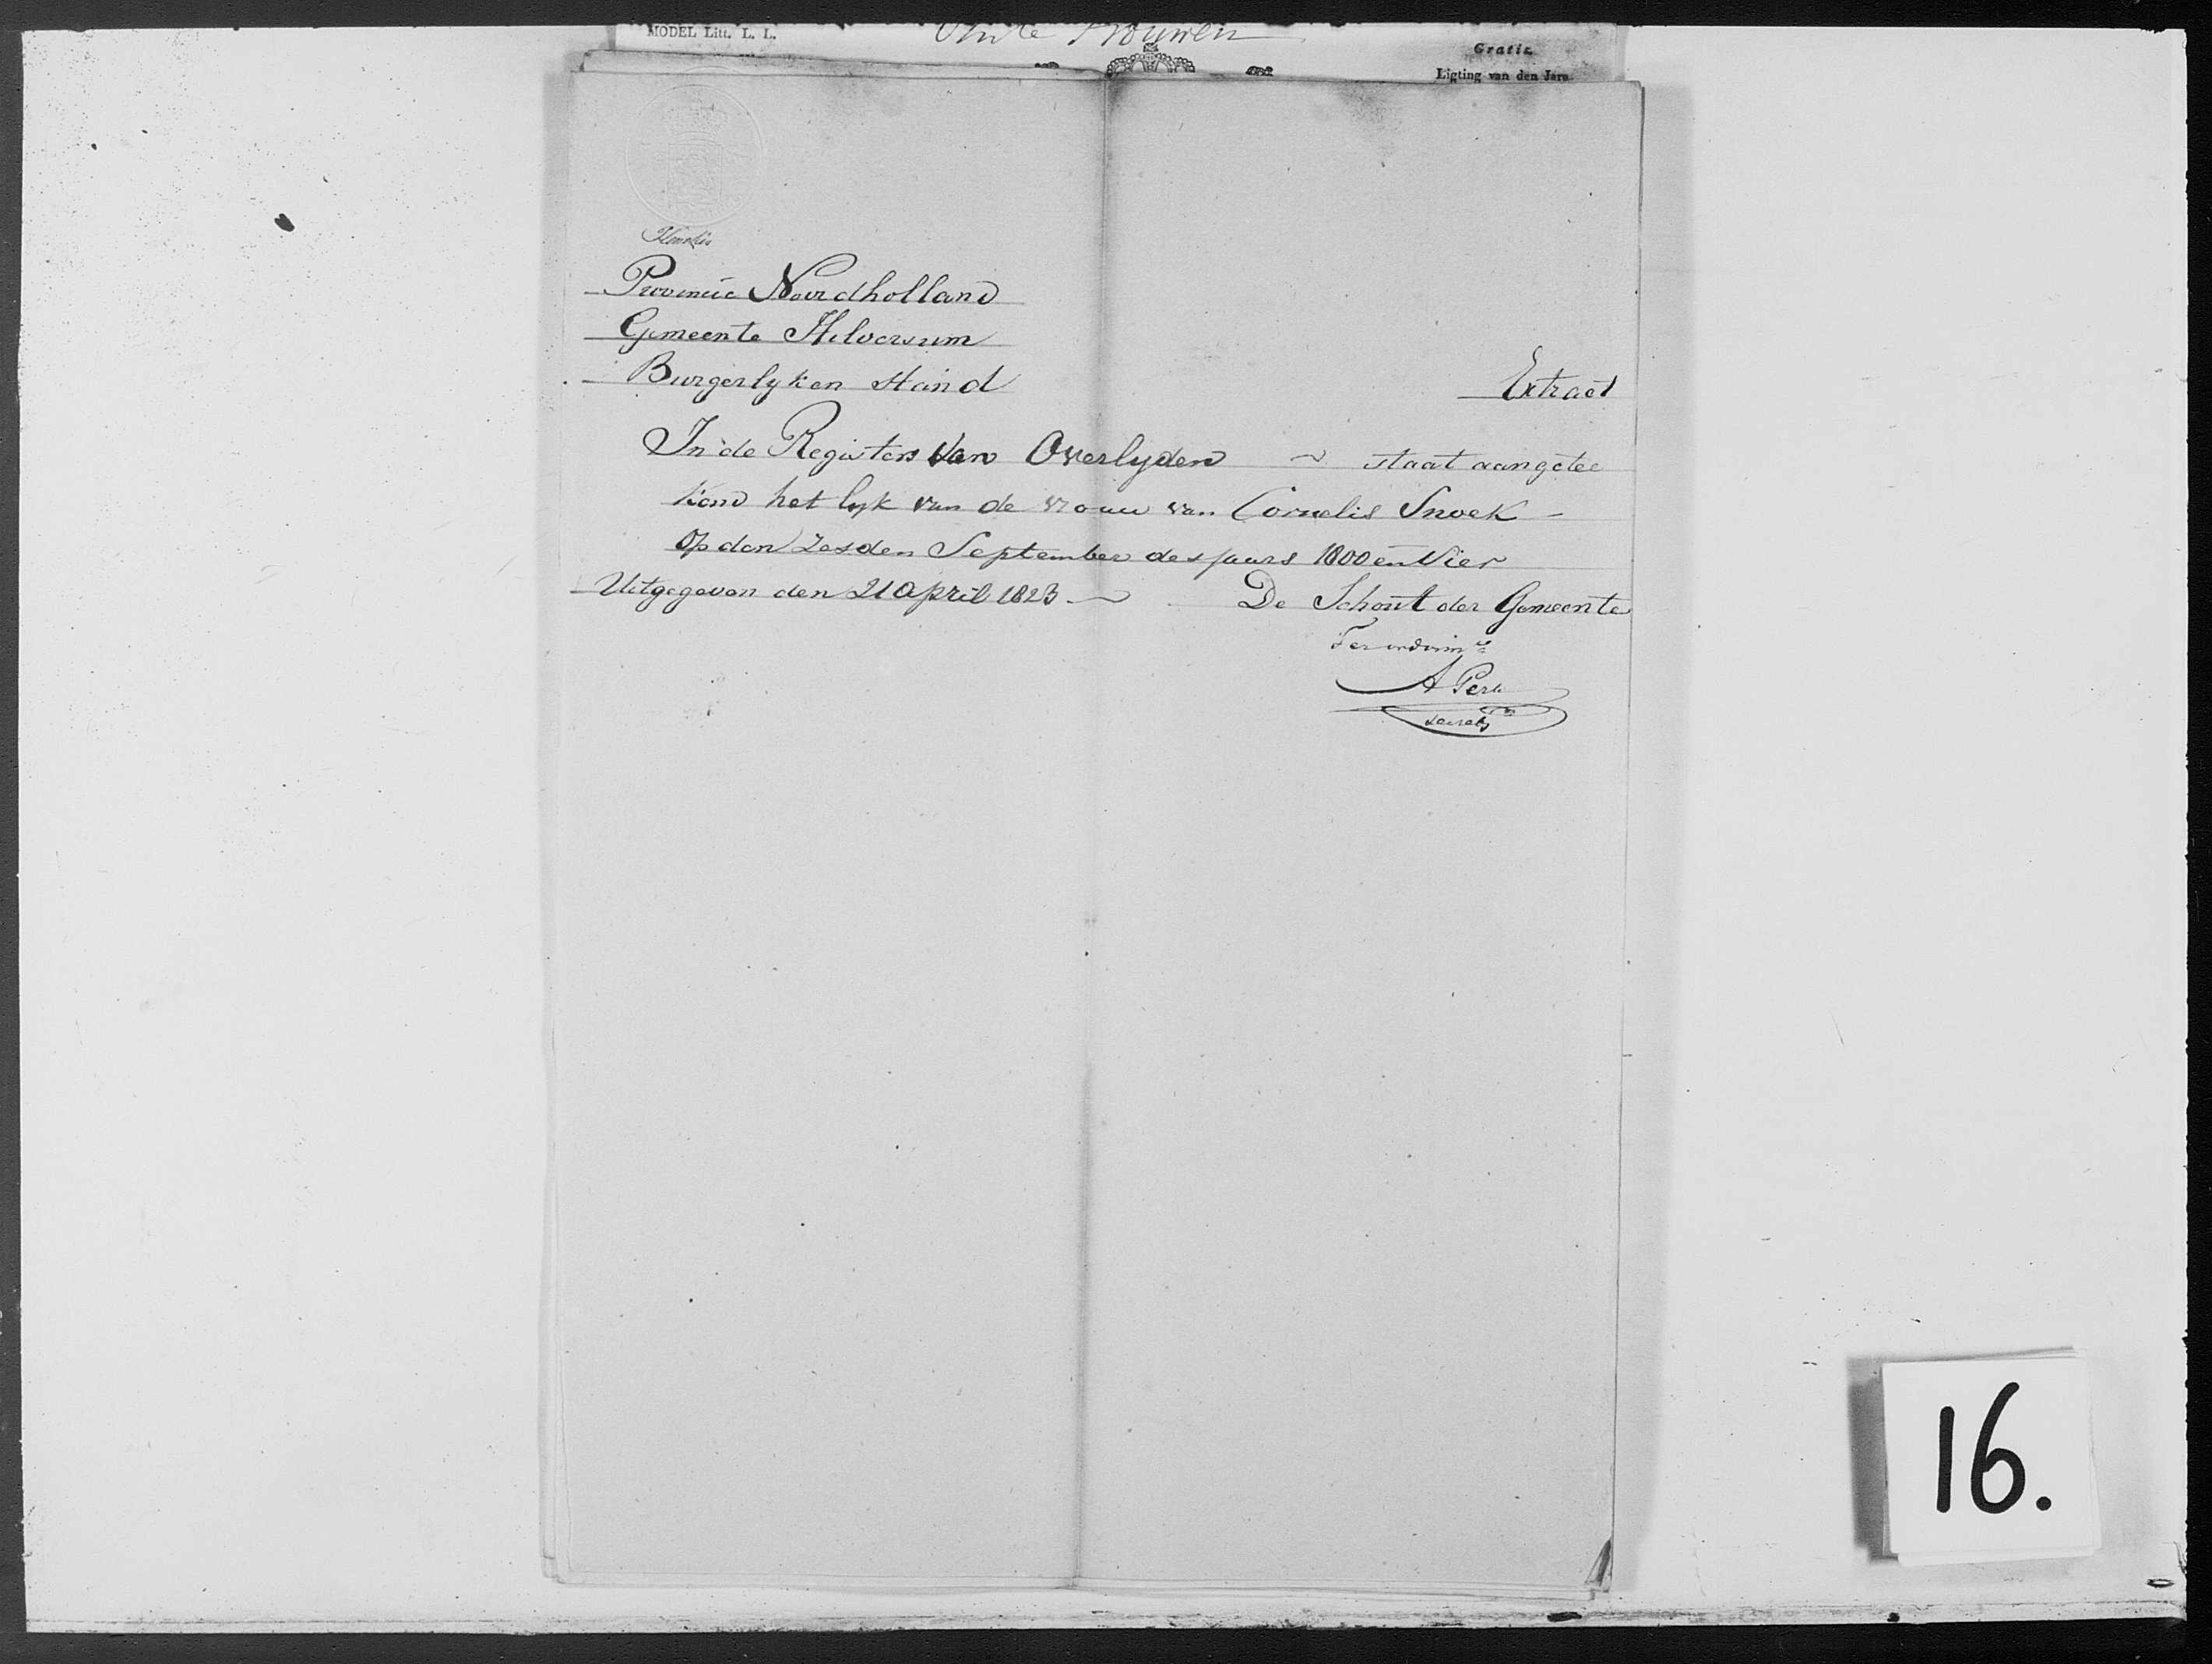 MODEL Litt. L. L.
Gratis
Ligting van den Jare
Provincie Noordholland
Gemeente Hilversum
Burgerlyken Stand
Extract
In de Registers van Overlyden ~ staat aangetee
kend het lyk van de vrouw van Cornelis Snoek -
op den zesden September des jaars 1800 en vier
Uitgegeven den 21 april 1823 ~ De Schout der Gemeente
A Perk
16.